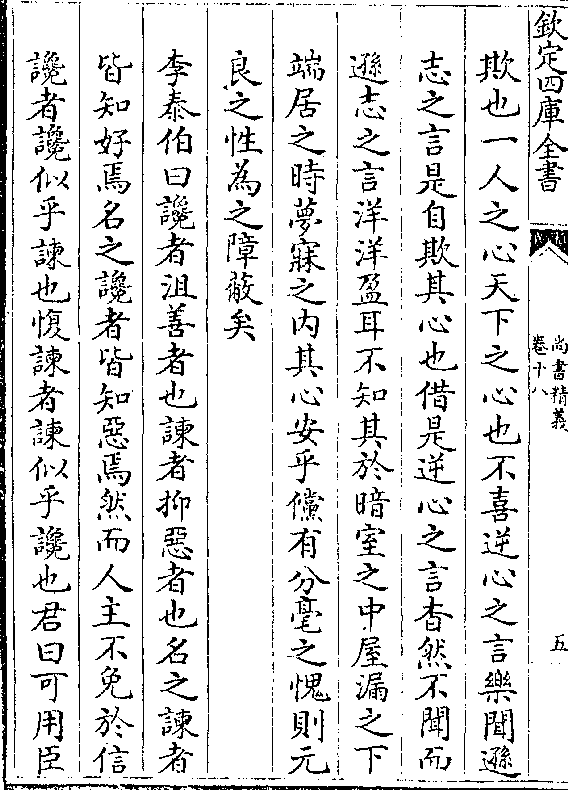 欽定四庫全書
尚書精義
卷十八
五
欺也一人之心天下之心也不喜逆心之言樂聞遜
志之言是自欺其心也借是逆心之言杳然不聞而
遜志之言洋洋盈耳不知其於暗室之中屋漏之下
端居之時夢寐之内其心安乎儻有分毫之愧則元
良之性為之障蔽矣
李泰伯曰讒者沮善者也諫者抑惡者也名之諫者
皆知好焉名之讒者皆知惡焉然而人主不免於信
讒者讒似乎諫也愎諫者諫似乎讒也君曰可用臣